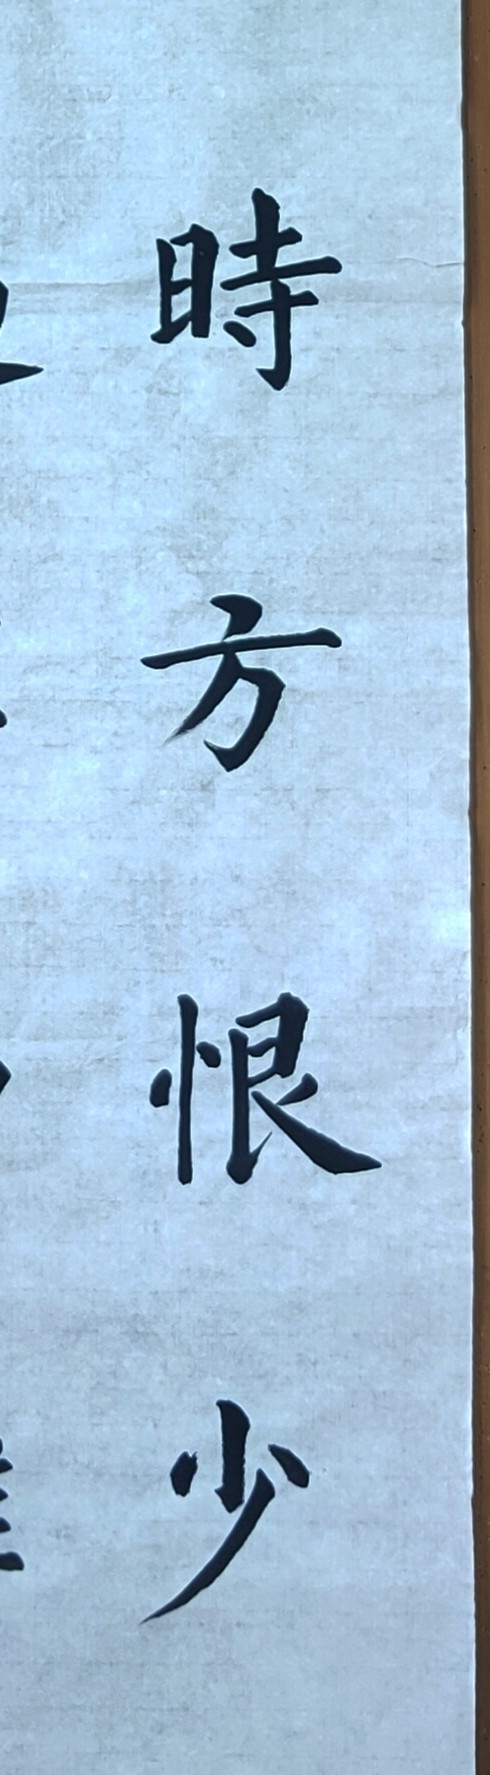 時方恨少